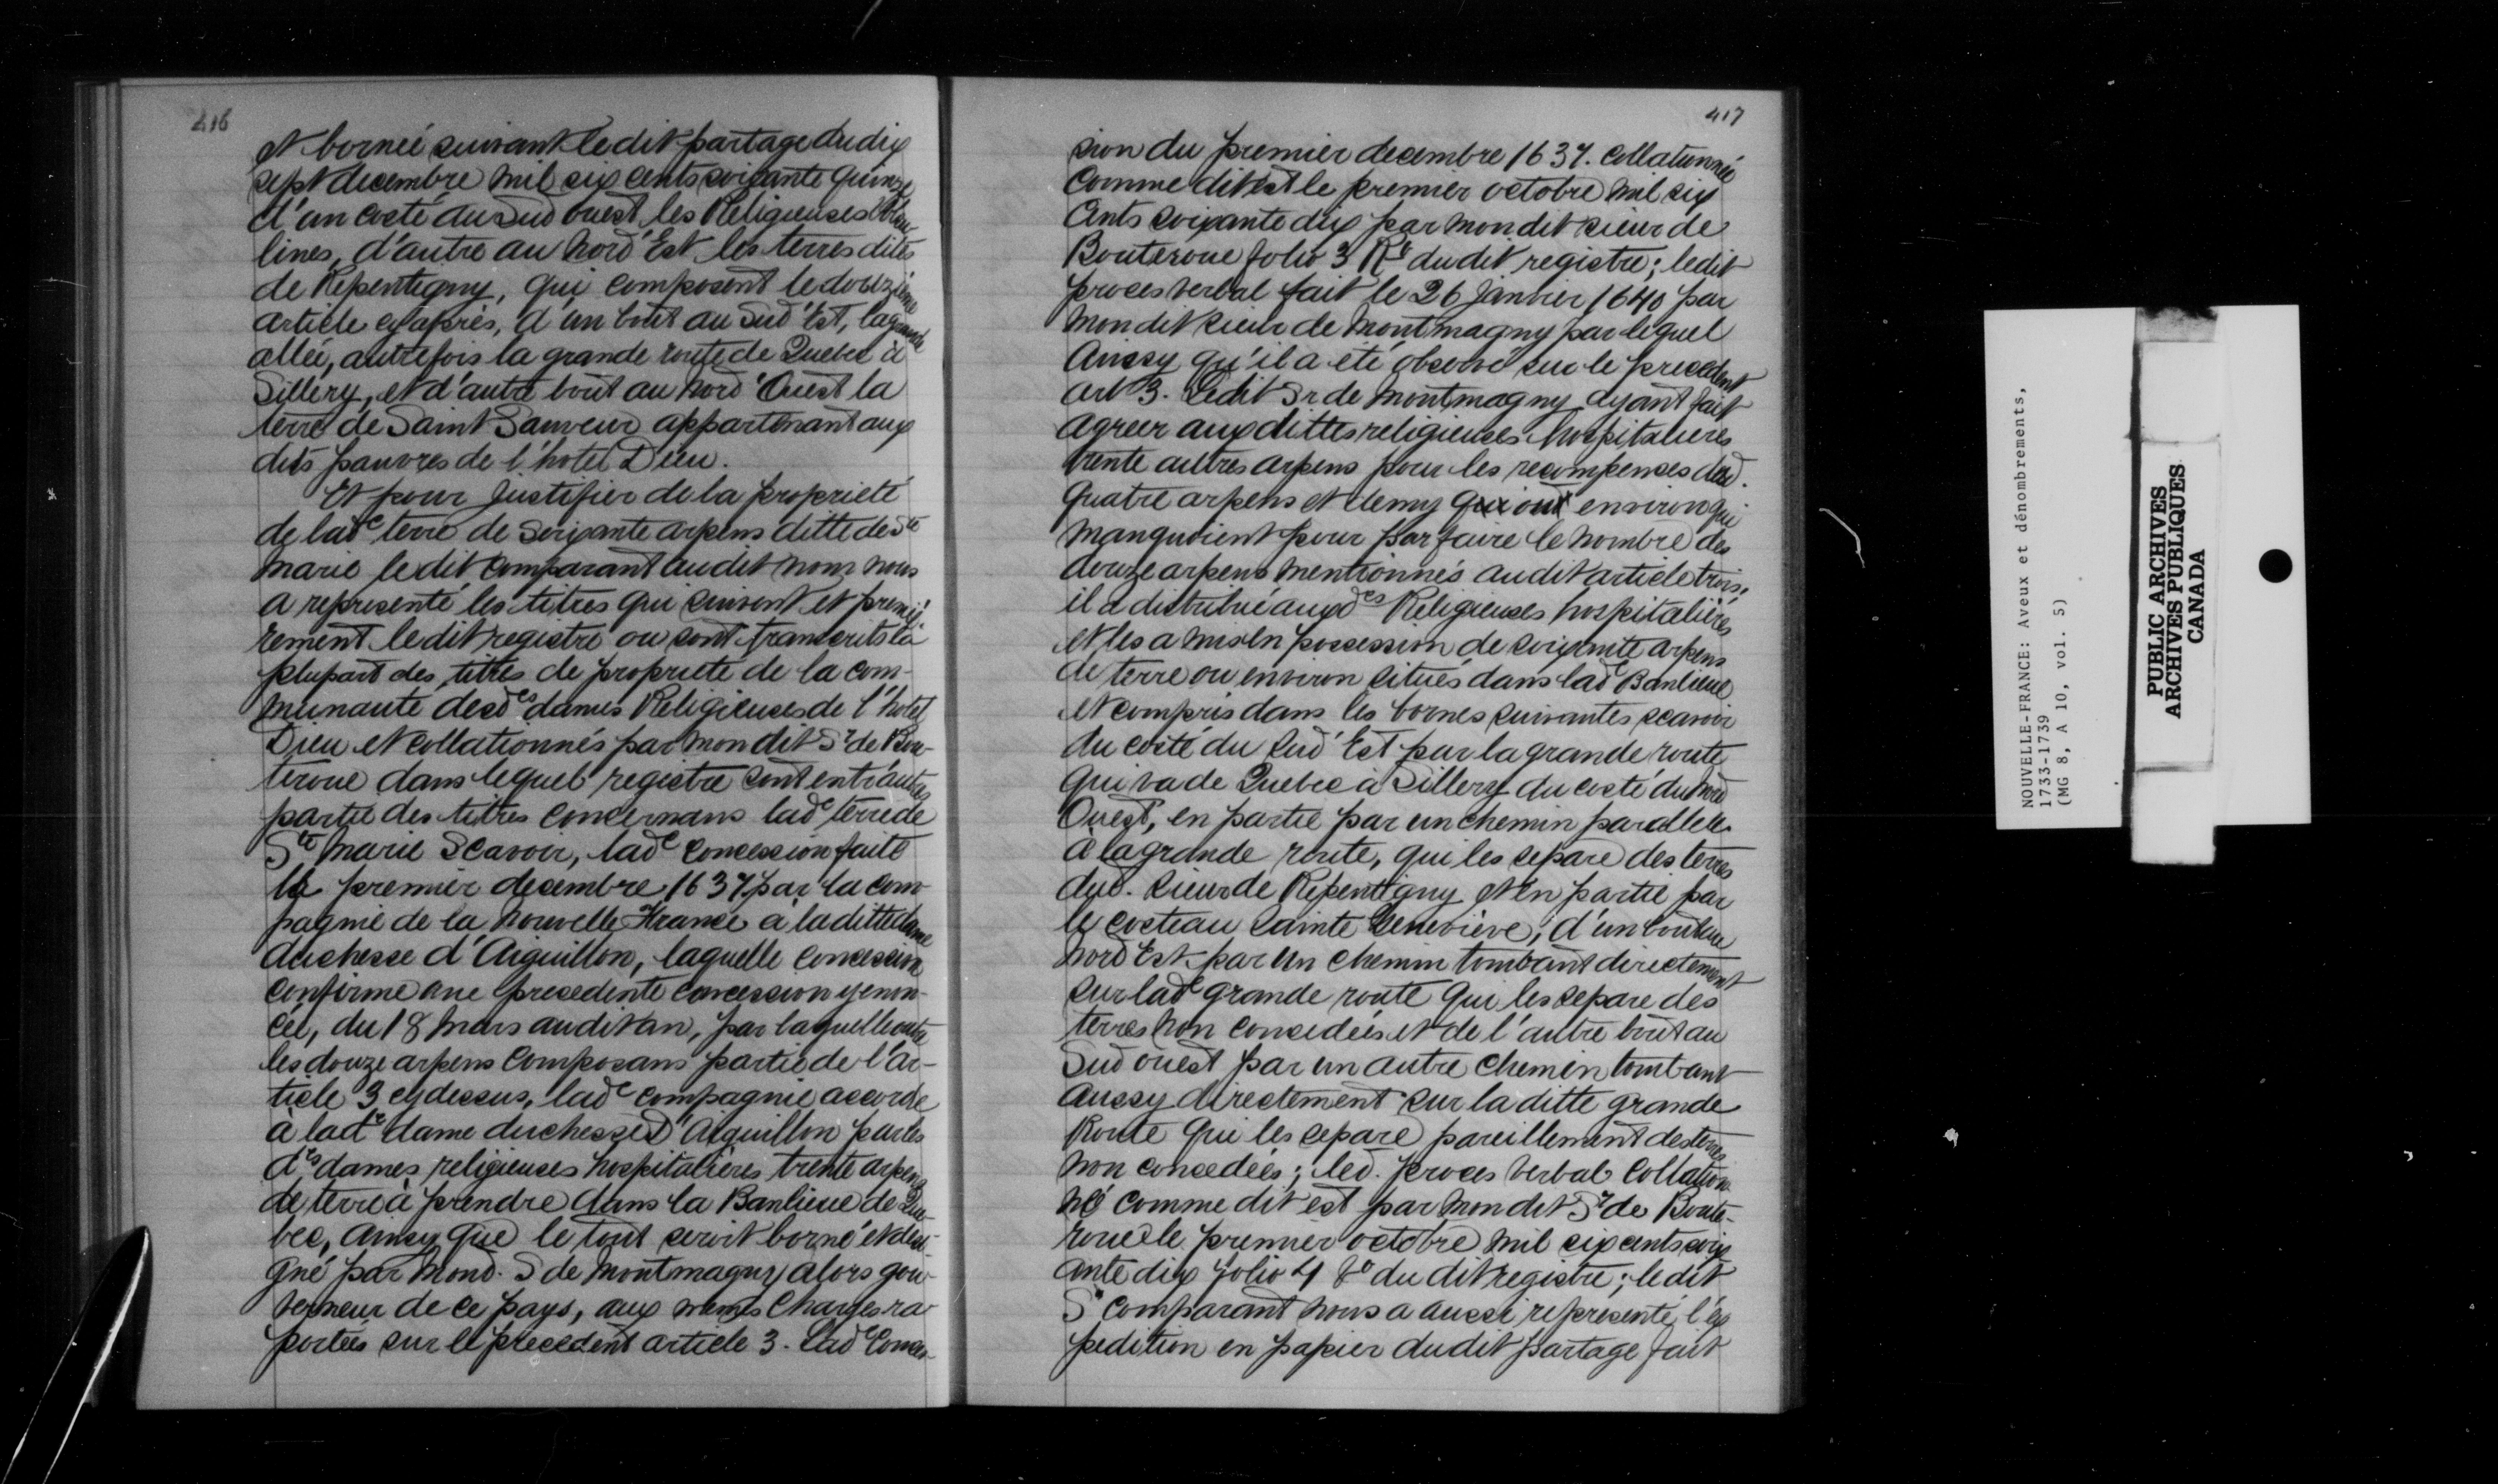 416
et bornée suivant le dit partage du dix
sept decembre mil six cents soixante quinze
d'un costé du sud ouest les Religieuses Ursu-
lines, d'autre au nord Est les terres dites
de Repentigny, qui composent le douzième
article cy après, d'un bout au Sud Est, la grande
allée, autrefois la grande route de Quebec à
Sillery, et d'autre bout au nord Ouest la
terre de Saint Sauveur appartenant aux
dits pauvres de l'hotel Dieu.
Et pour justifier de la propriété
de lade terre de soixante arpens ditte de Ste
Marie le dit comparant au dit nom nous
a representé les titres qui suivent et premiè-
rement le dit registre ou sont transcrits la
plupart des titres de propriete de la com-
munauté desdes dames Religieuses de l'hotel
Dieu et collationnés par mon dit Sr de Bou-
teroue dans lequel registre sont entr'autres
partie des titres concernans lade terre de
Ste Marie Scavoir, lade concession faite
le premier decembre 1637 par la com-
pagnie de la Nouvelle France à la ditte dame
duchesse d'Aiguillon, laquelle concession
confirme une precedente concession y enon-
cée, du 18 mars audit an, par laquelle outre
les douze arpens composans partie de l'ar-
ticle 3 cy dessus, lade compagnie accorde
à lade dame duchesse D'Aiguillon par les
des dames religieuses hospitalières trente arpens
de terre à prendre dans la Banlieue de Que-
bec, ainsy que le tout seroit borné et desi-
gné par mond. S de Montmagny alors gou-
verneur de ce pays, aux mêmes charges ra-
portées sur le precedent article 3. Lade Conces-
417
sion du premier decembre 1637. collationnée
comme dit est le premier octobre mil six
cents soixante dix par mon dit sieur de
Bouteroue folio 3 Rto du dit registre; ledit
procès verbal fait le 26 janvier 1640 par
mon dit sieur de Montmagny par lequel
Aussy qu'il a été observé sur le precedent
art 3. Ledit Sr de Montmagny ayant fait
agreer aux dittes religieuses hospitalieres
trente autres arpens pour les recompenses desd.
quatre arpens et demy qui ont environ qui
manquoient pour parfaire le nombre des
douze arpens mentionnés audit article trois,
il a distribué auxdes Religieuses hospitalières
et les a mis en possession de soixante arpens
de terre ou environ situés dans lade Banlieue
et compris dans les bornes suivantes scavoir
du costé du Sud Est par la grande route
qui va de Quebec à Sillery du costé du nord
Ouest, en partie par un chemin parallele
à la grande route, qui les separe des terres
dud. sieur de Repentigny et en partie par
le costeau Sainte Geneviève, d'un bout au
nord Est par un chemin tombant directement
sur lade grande route qui les separe des
terres non concedées et de l'autre bout au
Sud ouest par un autre chemin tombant
aussy directement sur la ditte grande
Route qui les separe pareillement des terres
non concedées; led. proces verbal Collation-
né comme dit est par mon dit Sr de Boute-
roue le premier octobre mil six cents soix
ante dix folio 4 Vo du dit registre; le dit
Sr comparant nous a aussi representé l'ex
pedition en papier dudit partage fait
NOUVELLE-FRANCE: Aveux et dénombrements,
1733-1739
(MG 8, A 10, vol. 5)
PUBLIC ARCHIVES
ARCHIVES PUBLIQUES
CANADA